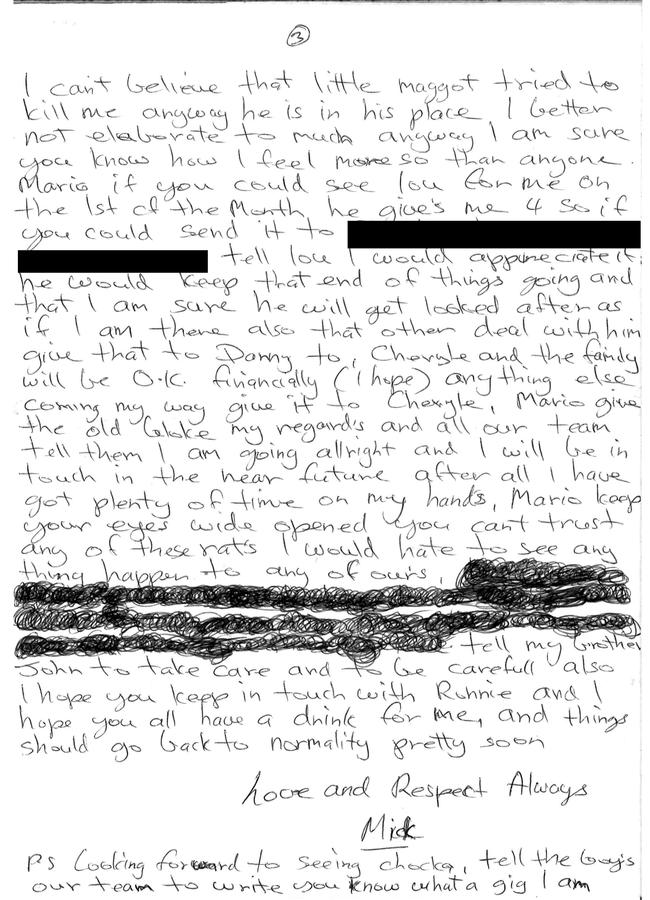 3
I cant believe that little maggot tried to
kill me anyway he is in his place I better
not elaborate to much anyway I am sure
you know how I feel more so than anyone.
Mario if you could see lou for me on
the 1st of the Month, he give's me 4 so if
you could send it to
tell lou I would appreciate it
he would keep that end of things going and
that I am sure he will get looked after as
if I am there also that other deal with him
give that to Danny to, Cheryle and the family
will be O.K. financially (I hope) anything else
coming my way give it to Cheryle, Mario give
the old bloke my regard's and all our team
tell them I am going allright and I will be in
touch in the near future after all I have
got plenty of time on my hands, Mario keep
your eyes wide opened you cant trust
any of these rat's I would hate to see any
thing happen to any of ours,
tell my brother
John to take care and to be carefull also
I hope you keep in touch with Ronnie and I
hope you all have a drink for me, and things
should go back to normality pretty soon
Love and Respect Always
Mick
PS Looking forward to seeing chocka, tell the Guy's
our team to write you know what a gig I am